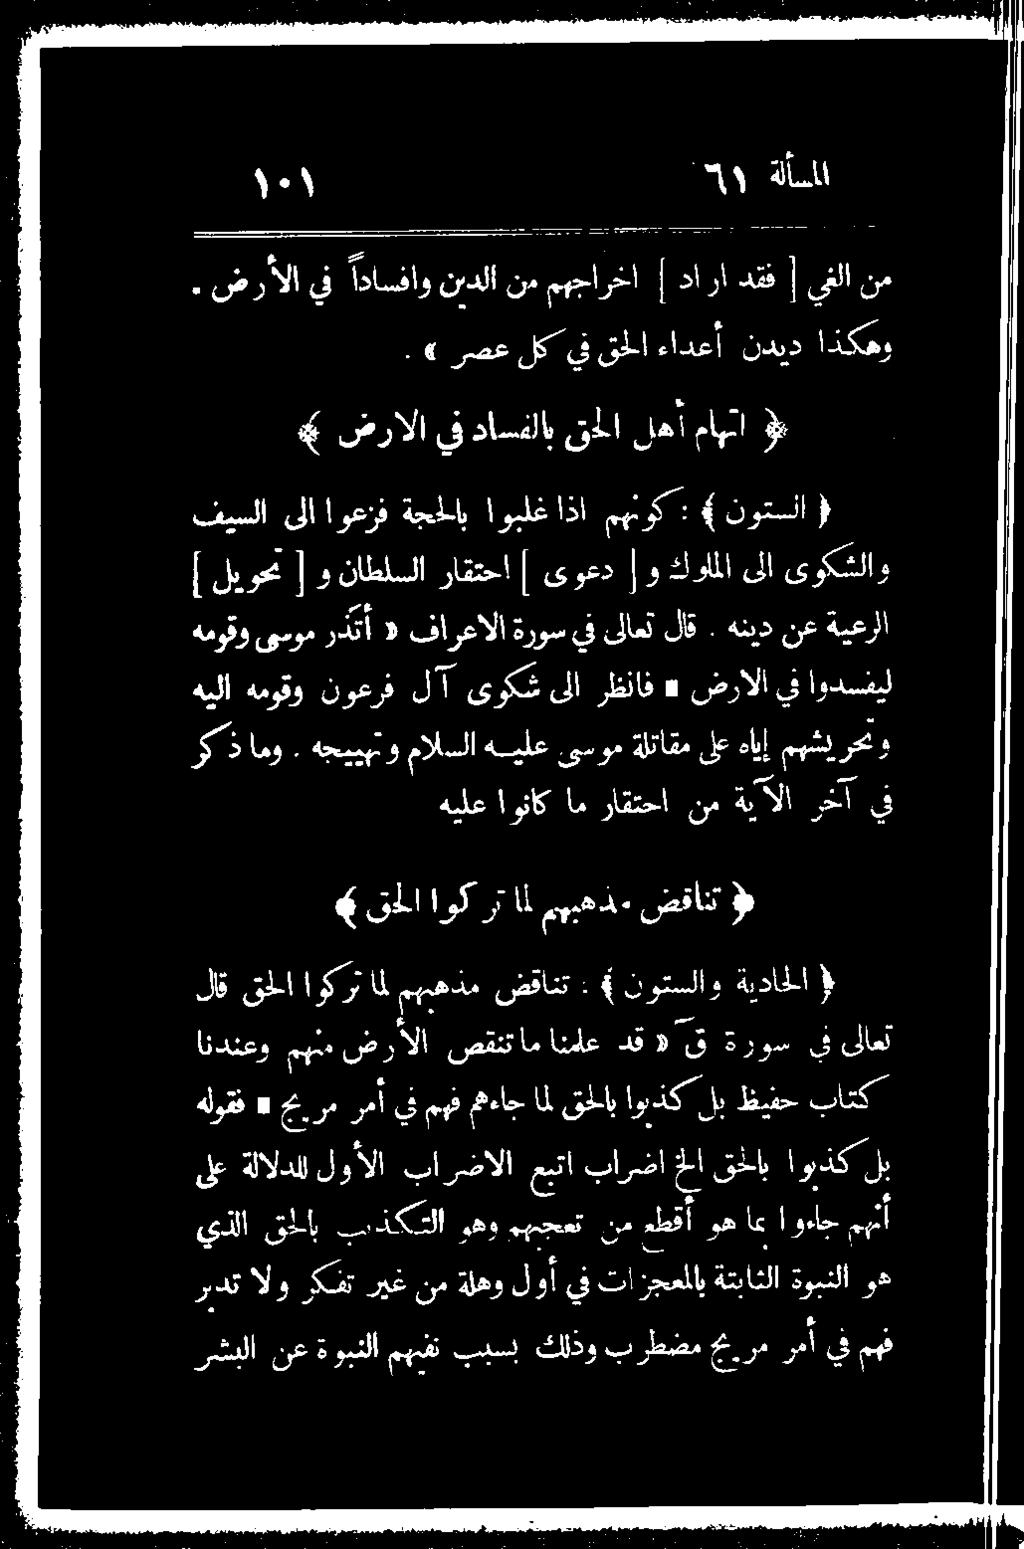 المسألة ٦١ ١٠١
من الغي [ فقد اراد ] اخراجهم من الدين وافساداً في الأرض .
وهكذا ديدن أعداء الحق في كل عصر » .
﴿ اتهام أهل الحق بالفساد في الارض ﴾
﴿ الستون ﴾ : كونهم اذا غلبوا بالحجة فزعوا الى السيف
والشكوى الى الملوك و [ دعوى ] احتقار السلطان و [ تحويل ]
الرعية عن دينه . قال تعالى في سورة الاعراف « أتَذر موسى وقومه
ليفسدوا في الارض ■ فانظر الى شكوى آل فرعون وقومه اليه
وتحريشهم إياه على مقاتلة موسى عليه السلام وتهييجه . وما ذكر
في آخر الآية من احتقار ما كانوا عليه
﴿ تناقض مذهبهم لما تركوا الحق ﴾
﴿ الحادية والستون ﴾ : تناقض مذهبهم لما تركوا الحق قال
تعالى في سورة قٓ « قد علمنا ما تنقص الأرض منهم وعندنا
كتاب حفيظ بل كذبوا بالحق لما جاءهم فهم في أمر مريج ■ فقوله
بل كذبوا بالحق الخ اضراب اتبع الاضراب الأول للدلالة على
أنهم جاءوا بما هو أقطع من تعجبهم وهو التكذيب بالحق الذي
هو النبوة الثابتة بالمعجزات في أول وهلة من غير تفكر ولا تدبر
فهم في أمر مريج مضطرب وذلك بسبب نفيهم النبوة عن البشر